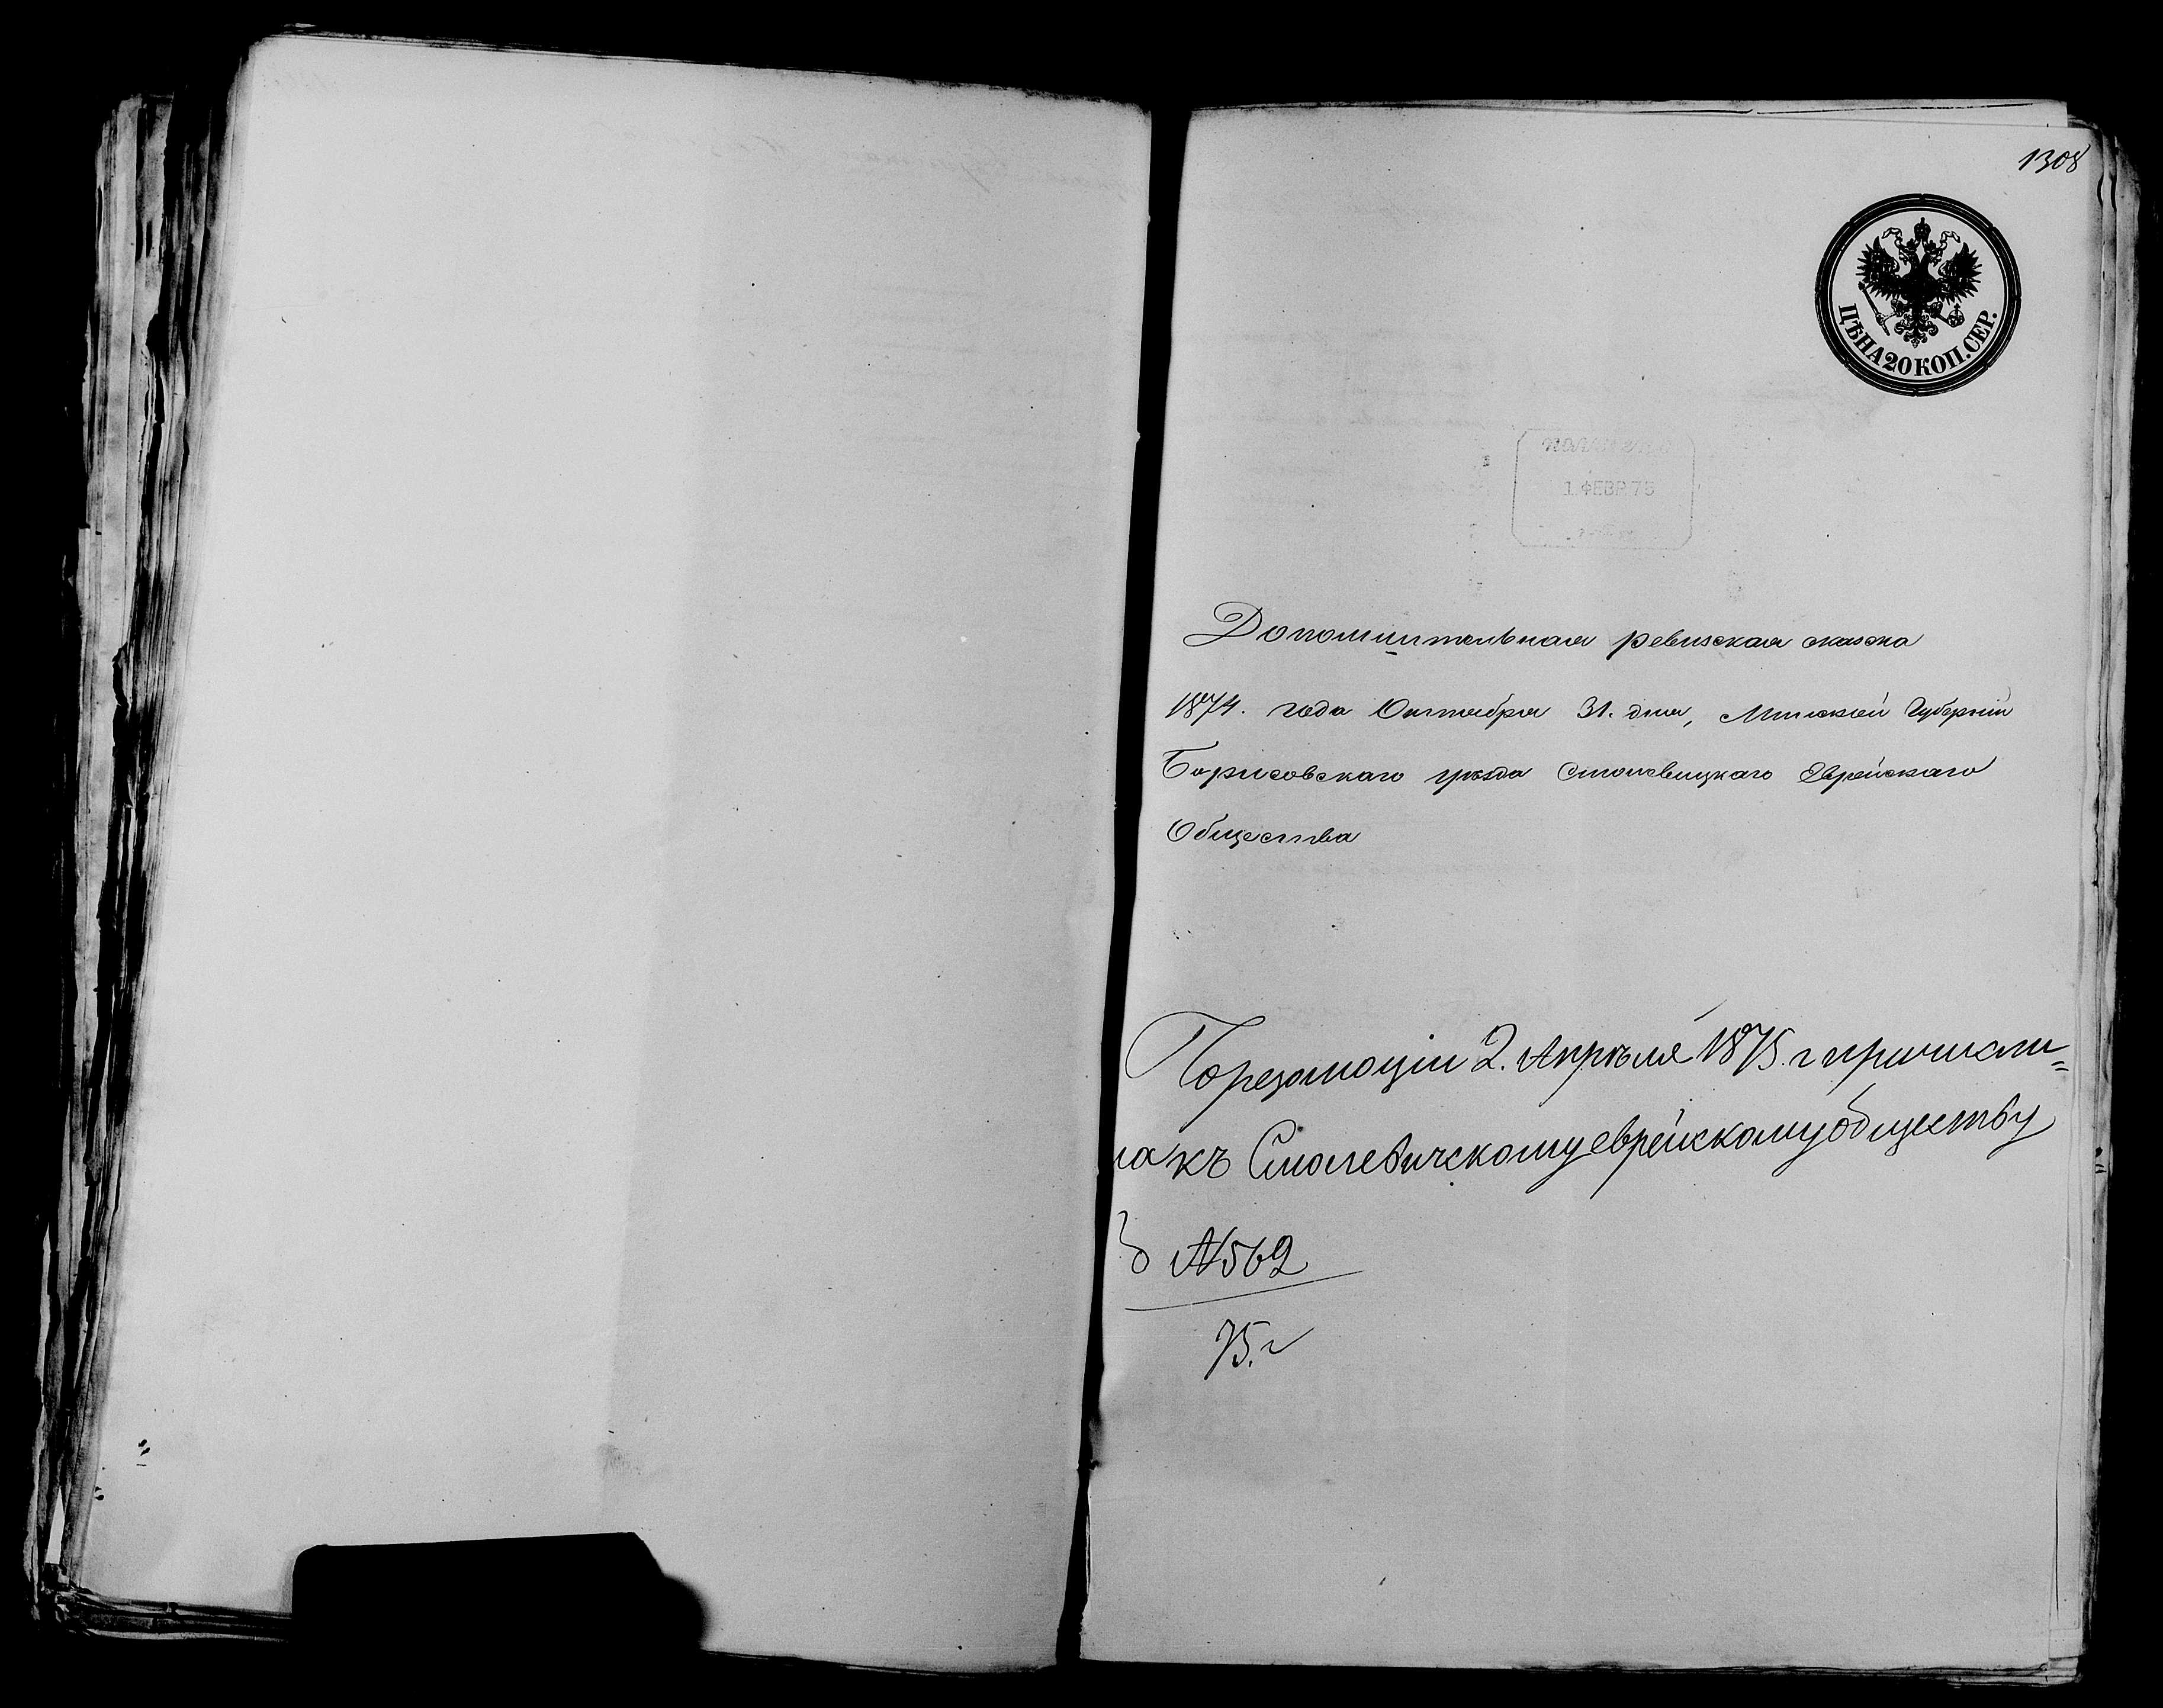 1308
ЦѢНА 20 КОП. СЕР.
1 ФЕВР 75
Дополнительная ревизская сказка
1874. года Октября 31. дня, Минской Губерніи
Борисовскаго уѣзда Смолевицкаго Еврейскаго
Общества
По резолюціи 2. Апрѣля 1875. г причисли=
на къ Смолевичскому еврейскому обществу
№ 562
75. г